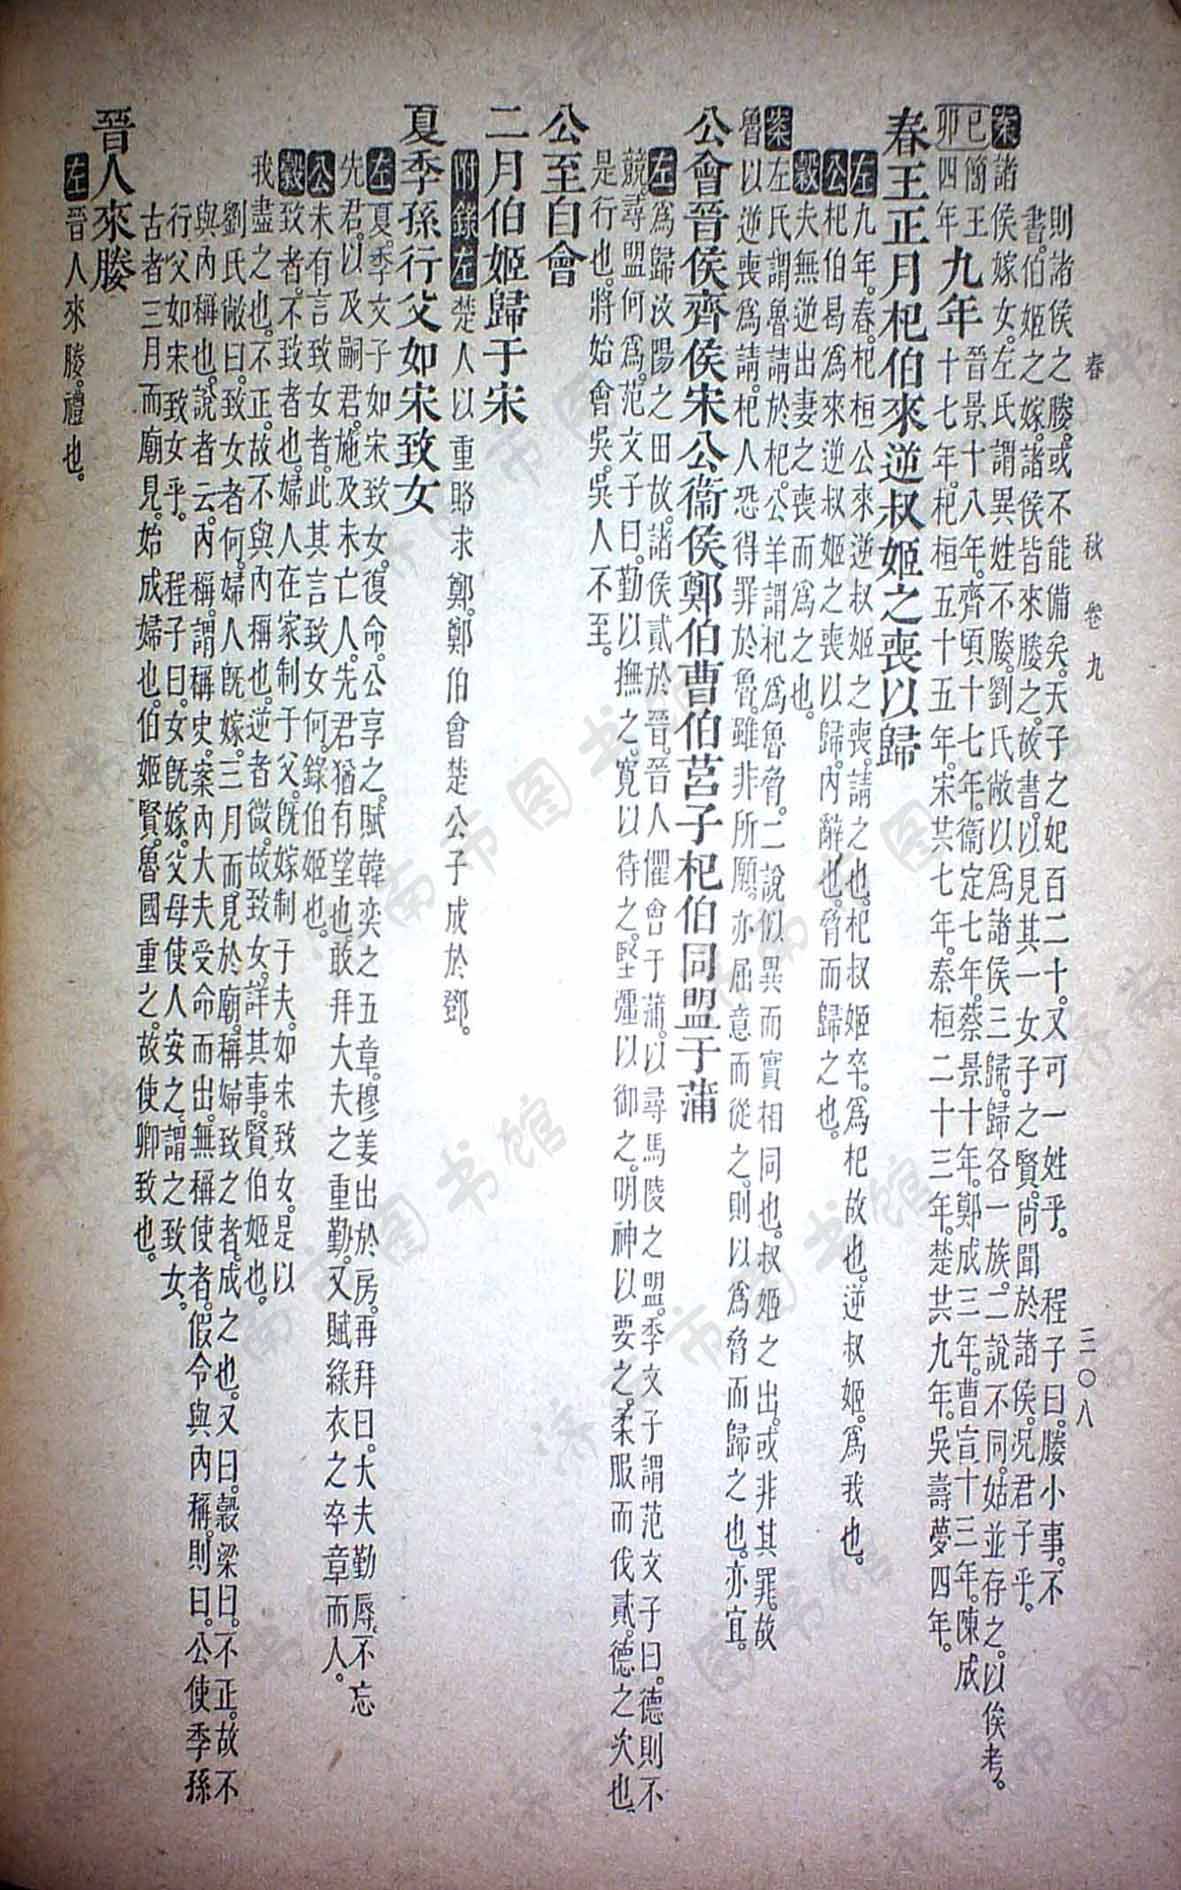 春　秋　卷九　三〇八
則諸侯之媵。或不能備矣。天子之妃百二十。又可一姓乎。　程子曰。媵小事。不
書。伯姬之嫁。諸侯皆來媵之。故書。以見其一女子之賢。尚聞於諸侯。況君子乎。
案諸侯嫁女。左氏謂異姓不媵。劉氏敞以爲諸侯三歸。歸各一族。二說不同。姑並存之。以俟考。
己卯簡王四年九年晉景十八年。齊頃十七年。衞定七年。蔡景十年。鄭成三年。曹宣十三年。陳成
十七年。杞桓五十五年。宋共七年。秦桓二十三年。楚共九年。吳壽夢四年。
春王正月杞伯來逆叔姬之喪以歸
左九年。春。杞桓公來逆叔姬之喪。請之也。杞叔姬卒。爲杞故也。逆叔姬。爲我也。
公杞伯曷爲來逆叔姬之喪以歸。內辭也。脅而歸之也。
穀夫無逆出妻之喪而爲之也。
案左氏謂魯請於杞。公羊謂杞爲魯脅。二說似異而實相同也。叔姬之出。或非其罪。故
魯以逆喪爲請。杞人恐得罪於魯。雖非所願。亦屈意而從之。則以爲脅而歸之也。亦宜。
公會晉侯齊侯宋公衞侯鄭伯曹伯莒子杞伯同盟于蒲
左爲歸汶陽之田故。諸侯貳於晉。晉人懼會于蒲。以尋馬陵之盟。季文子謂范文子曰。德則不
競。尋盟何爲。范文子曰。勤以撫之。寬以待之。堅彊以御之。明神以要之。柔服而伐貳。德之次也
是行也。將始會吳。吳人不至。
公至自會
二月伯姬歸于宋
附錄左楚人以重賂求鄭。鄭伯會楚公子成於鄧。
夏季孫行父如宋致女
左夏。季文子如宋致女。復命。公享之。賦韓奕之五章。穆姜出於房。再拜曰。大夫勤辱。不忘
先君。以及嗣君。施及未亡人。先君猶有望也。敢拜大夫之重勤。又賦綠衣之卒章而入。
公未有言致女者。此其言致女何。錄伯姬也。
穀致者。不致者也。婦人在家制于父。旣嫁制于夫。如宋致女。是以
我盡之也。不正。故不與內稱也。逆者微。故致女。詳其事。賢伯姬也。
劉氏敞曰。致女者何。婦人旣嫁。三月而見於廟。稱婦致之者。成之也。又曰。穀梁曰。不正。故不
與內稱也。說者云。內稱。謂稱史。案內大夫受命而出。無稱使者。假令與內稱。則曰。公使季孫
行父如宋致女乎。　程子曰。女旣嫁。父母使人安之。謂之致女。
古者三月而廟見。始成婦也。伯姬賢。魯國重之。故使卿致也。
晉人來媵
左晉人來媵。禮也。